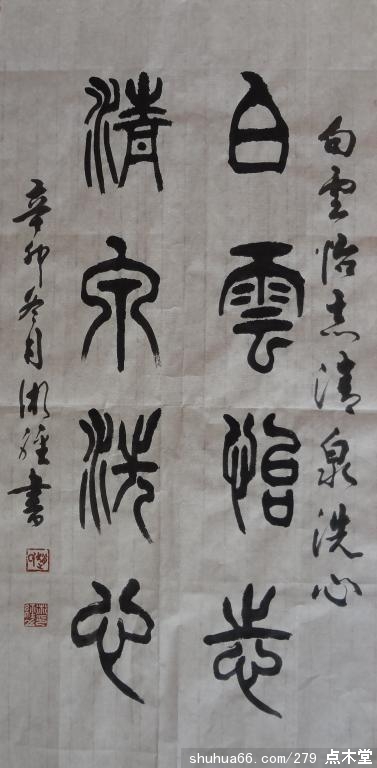 白雲怡志清泉洗心
白雲怡志
清泉洗心
辛卯冬月
書
shuhua66.com/279 点木堂